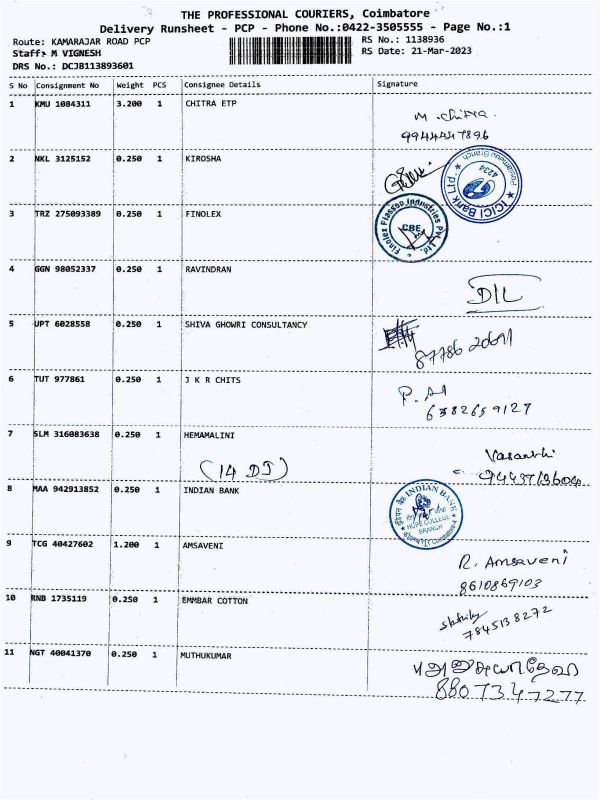 THE PROFESSIONAL COURIERS, Coimbatore
Delivery Runsheet - PCP - Phone No.:0422-3505555 - Page No.:1
Route: KAMARAJAR ROAD PCP
RS No.: 1138936
Staff: M VIGNESH
RS Date: 21-Mar-2023
DRS No.: DCJB113893601
S No Consignment No Weight PCS Consignee Details Signature
1 KMU 1084311 3.200 1 CHITRA ETP
M. Chitra
9944447896
2 NKL 3125152 0.250 1 KIROSHA
ICICI Bank Ltd.
4234
3 TRZ 275093389 0.250 1 FINOLEX
Finolex Plasson Industries Pvt. Ltd.
CBE
4 GGN 98052337 0.250 1 RAVINDRAN
D/L
5 UPT 6028558 0.250 1 SHIVA GHOWRI CONSULTANCY
87786 20691
6 TUT 977861 0.250 1 J K R CHITS
6382659127
7 SLM 316083638 0.250 1 HEMAMALINI
Vasanthi
(14 DJ)
8 MAA 942913852 0.250 1 INDIAN BANK
INDIAN BANK
HOPE COLLEGE
BRANCH
9 TCG 40427602 1.200 1 AMSAVENI
R. Amsaveni
8610869103
10 RNB 1735119 0.250 1 EMMBAR COTTON
7845138272
11 NGT 40041370 0.250 1 MUTHUKUMAR
8807347277